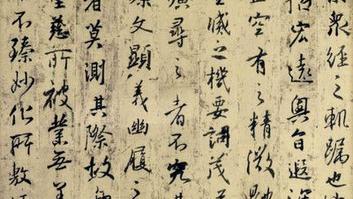 眾經之軌躅也
宏遠奧旨遐深
空有之精微體
滅之機要詞茂
曠尋之者不究其
文顯義幽履之
者莫測其際故
聖慈所被業無善
不臻妙化所敷